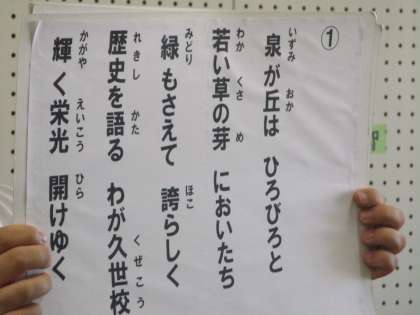 ①
泉が丘は ひろびろと
若い草の芽 においたち
緑もさえて 誇らしく
歴史を語る わが久世校
輝く栄光 開けゆく
いずみ おか
わか くさ め
みどり ほこ
れきし かた くぜこう
かがや えいこう ひら